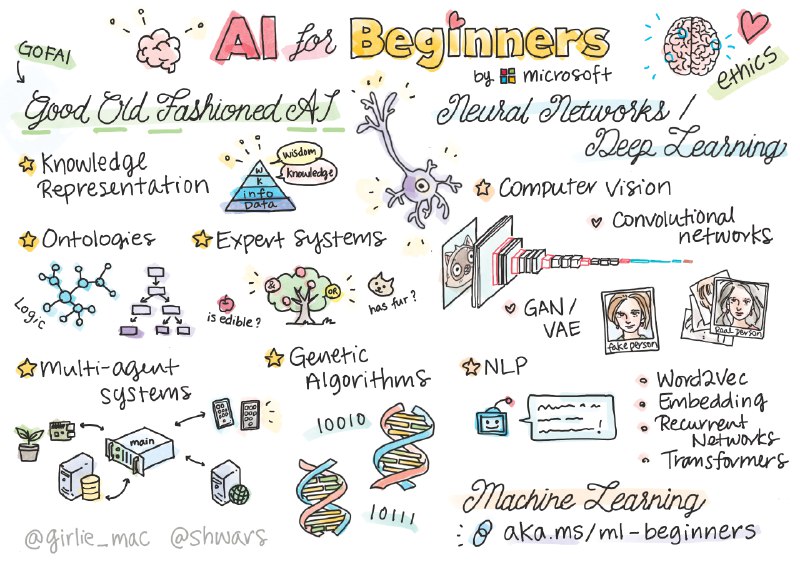 AI for Beginners
by microsoft
GOFAI
ethics
Good Old Fashioned AI
Knowledge
Representation
wisdom
knowledge
W
K
info
Data
Ontologies
Logic
Expert Systems
&
OR
is edible?
has fur?
Multi-agent
systems
main
Genetic
Algorithms
10010
10111
@girlie_mac @shwars
Neural Networks /
Deep Learning
Computer Vision
Convolutional
networks
GAN/
VAE
fake person
Real person
NLP
Word2Vec
Embedding
Recurrent
Networks
Transformers
Machine Learning
aka.ms/ml-beginners